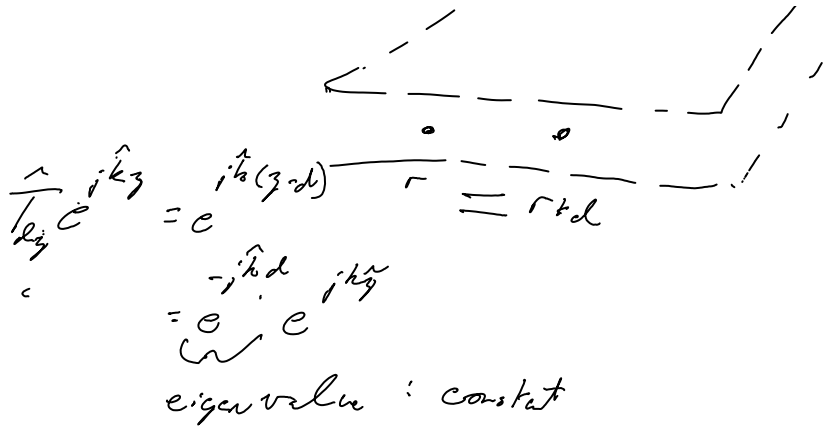 r = r+d
T̂_{dz} e^{jk̂z} = e^{jk̂(z-d)}
= e^{-jk̂d} e^{jkz̃}
eigenvalue : constant